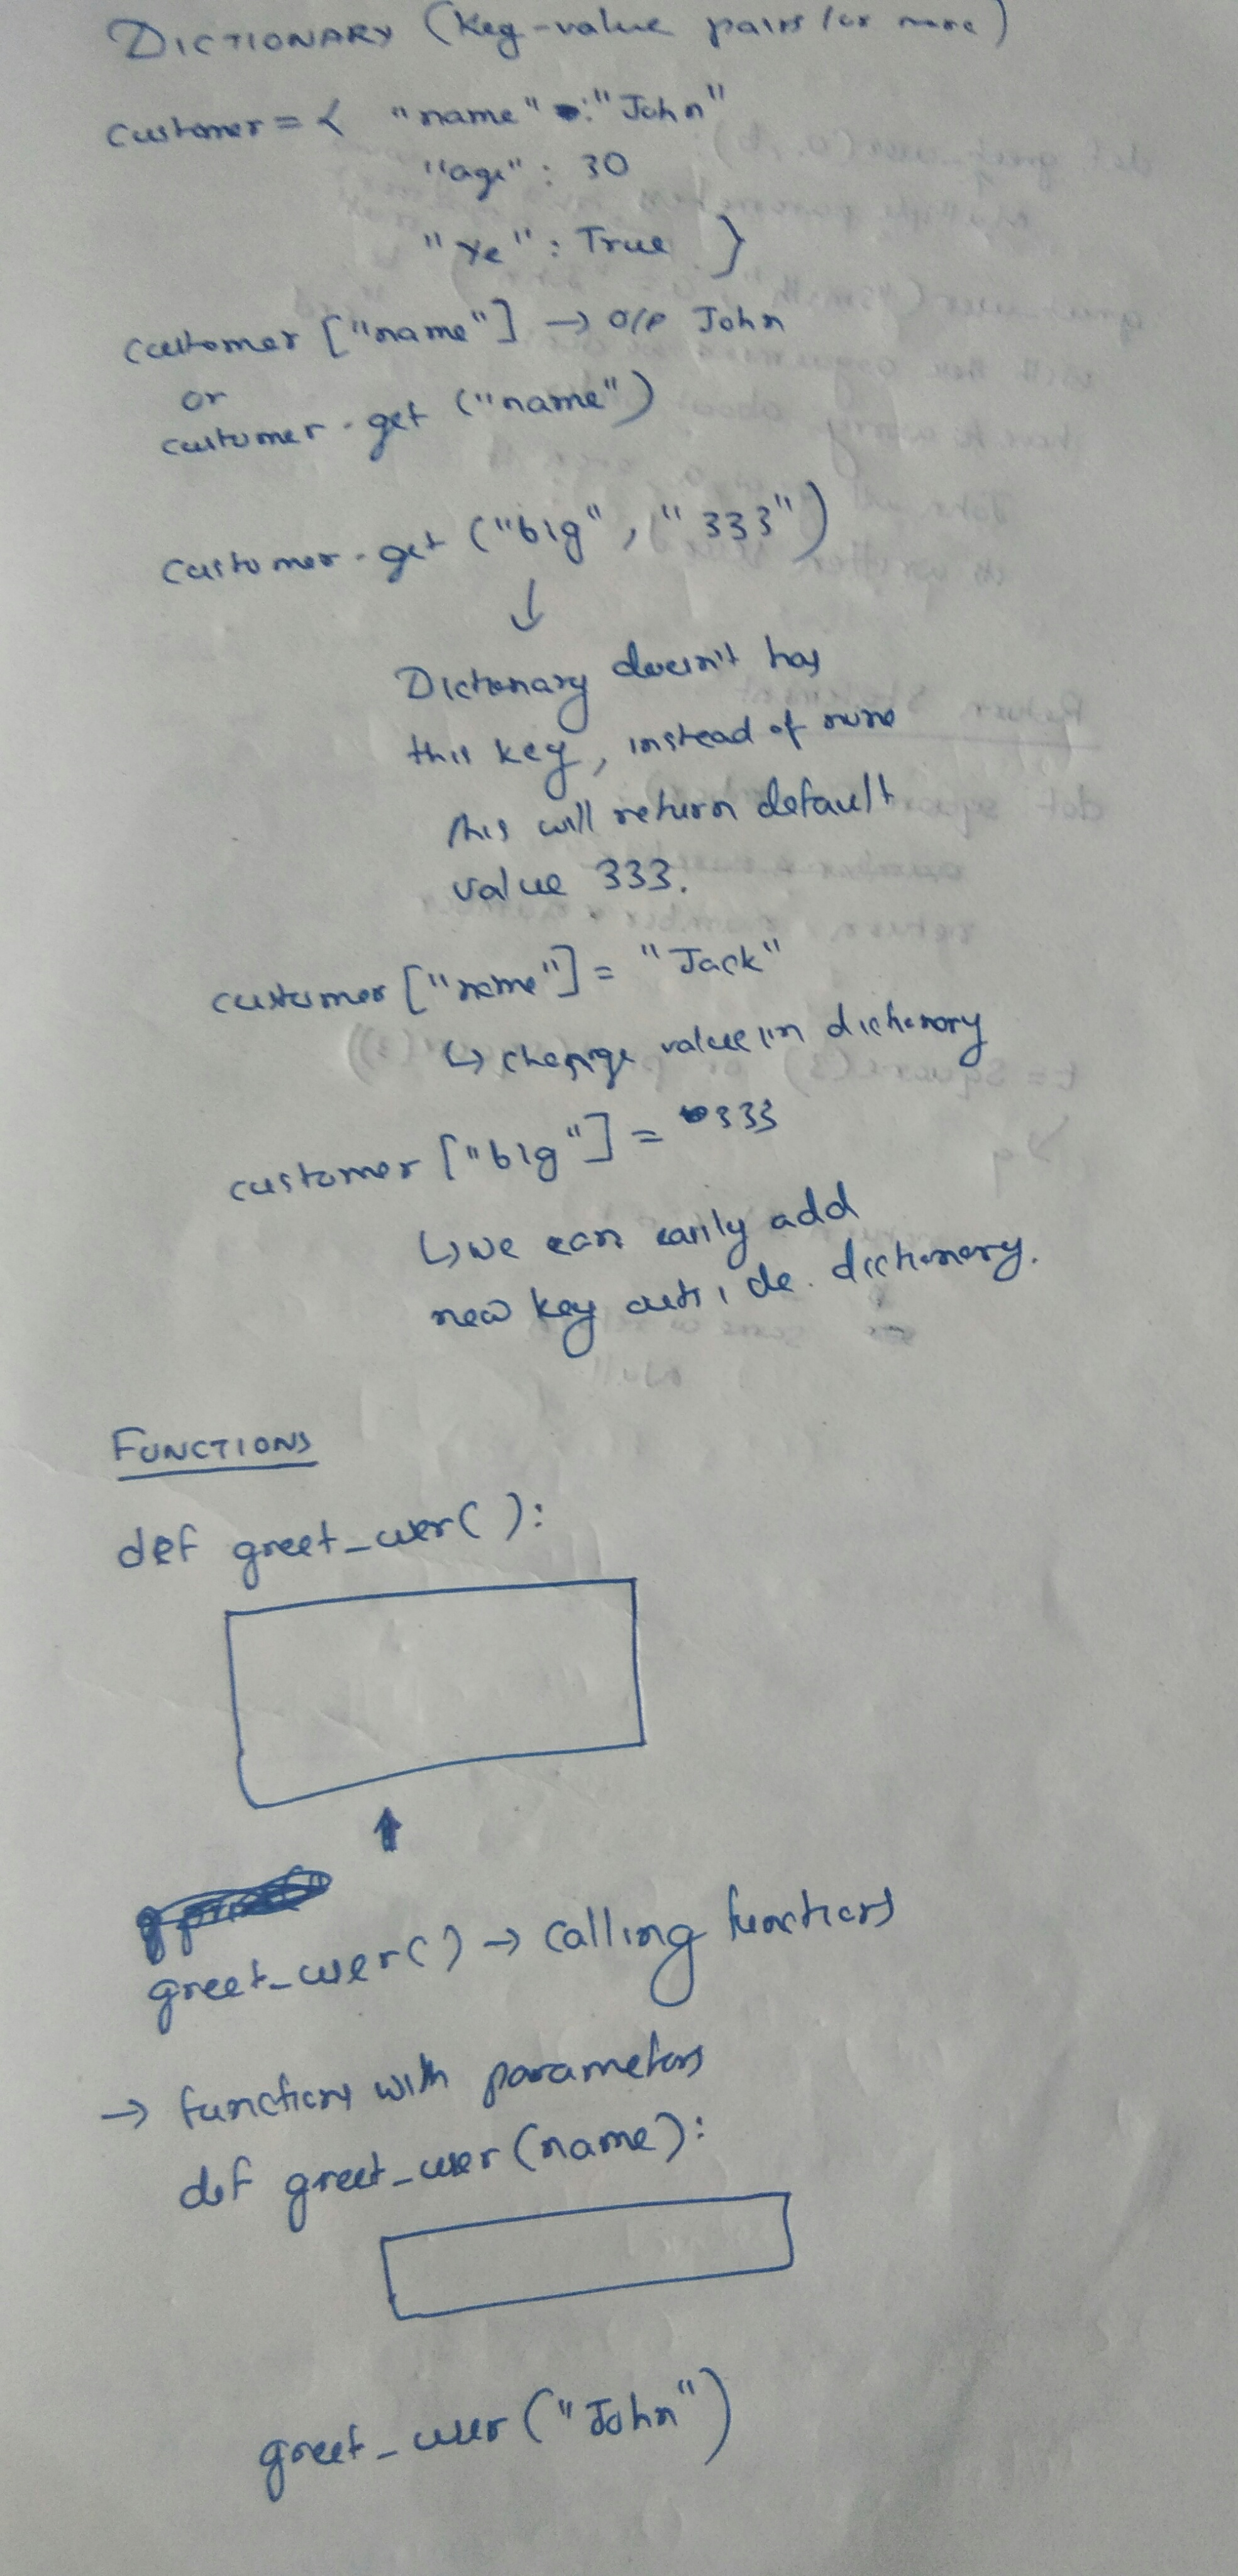 DICTIONARY (Key-value pairs / or more)
customer = { "name" : "John"
"age" : 30
"Ye" : True }
customer ["name"] → O/P John
or
customer.get ("name")
customer.get ("big", "333")
↓
Dictionary doesn't has
this key, instead of none
this will return default
value 333.
customer ["name"] = "Jack"
↳ change value in dictionary
customer ["big"] = 333
↳ we can easily add
new key outside. dictionary.
FUNCTIONS
def greet_user( ):
↑
greet_user() → calling functions
→ functions with parameters
def greet_user (name):
greet_user ("John")